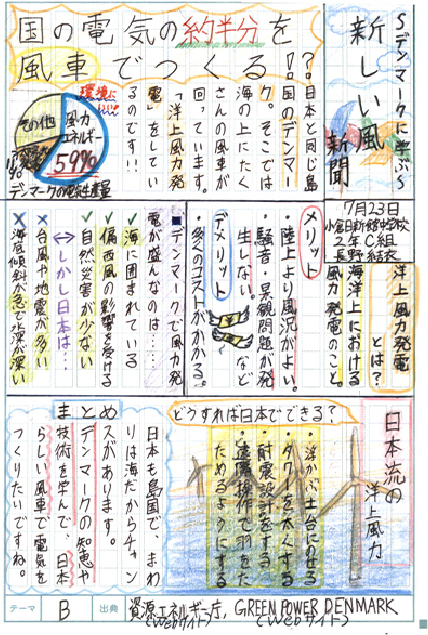 〜デンマークに学ぶ〜
新しい風
新聞
国の電気の約半分を
風車でつくる!?
日本と同じ島
国のデンマー
ク。そこでは
海の上にたく
さんの風車が
回っています。
「洋上風力発
電」をしてい
るのです!!
環境に
風力
エネルギー
59%
その他
デンマークの電気生産量
7月23日
2年C組
洋上
風力発電
とは?
海洋上における
風力発電のこと。
メリット
・陸上より風況がよい。
・騒音・景観問題が発
生しない。など
デメリット
・多くのコストがかかる。
■デンマークで風力発
電が盛んなのは…
✓海に囲まれている
✓偏西風の影響を受ける
✓自然災害が少ない
↔しかし日本は…
×台風や地震が多い
×海底傾斜が急で水深が深い
日本流の
洋上風力
どうすれば日本でできる?
・浮かぶ土台にのせる
・タワーを太くする
・耐震設計をする
・遠隔操作で羽をた
ためるようにする
まとめ
日本も島国で、まわ
りは海だからチャン
スがあります。
デンマークの知恵や
技術を学んで、日本
らしい風車で電気を
つくりたいですね。
テーマ
B
出典
資源エネルギー庁, GREEN POWER DENMARK
(Webサイト) (Webサイト)